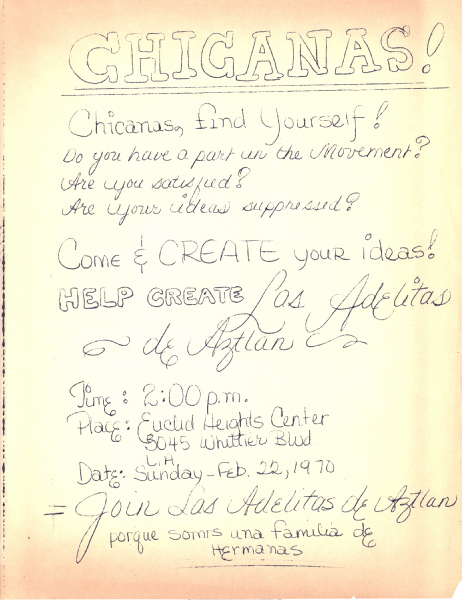 CHICANAS!
Chicanas, find Yourself!
Do you have a part in the Movement?
Are you satisfied?
Are your ideas suppressed?
Come & CREATE your ideas!
HELP CREATE Las Adelitas
de Aztlan
Time: 2:00 p.m.
Place: Euclid Heights Center
3045 Whittier Blvd
L.A.
Date: Sunday-Feb. 22, 1970
= Join Las Adelitas de Aztlan
porque somrs una familia de
Hermanas